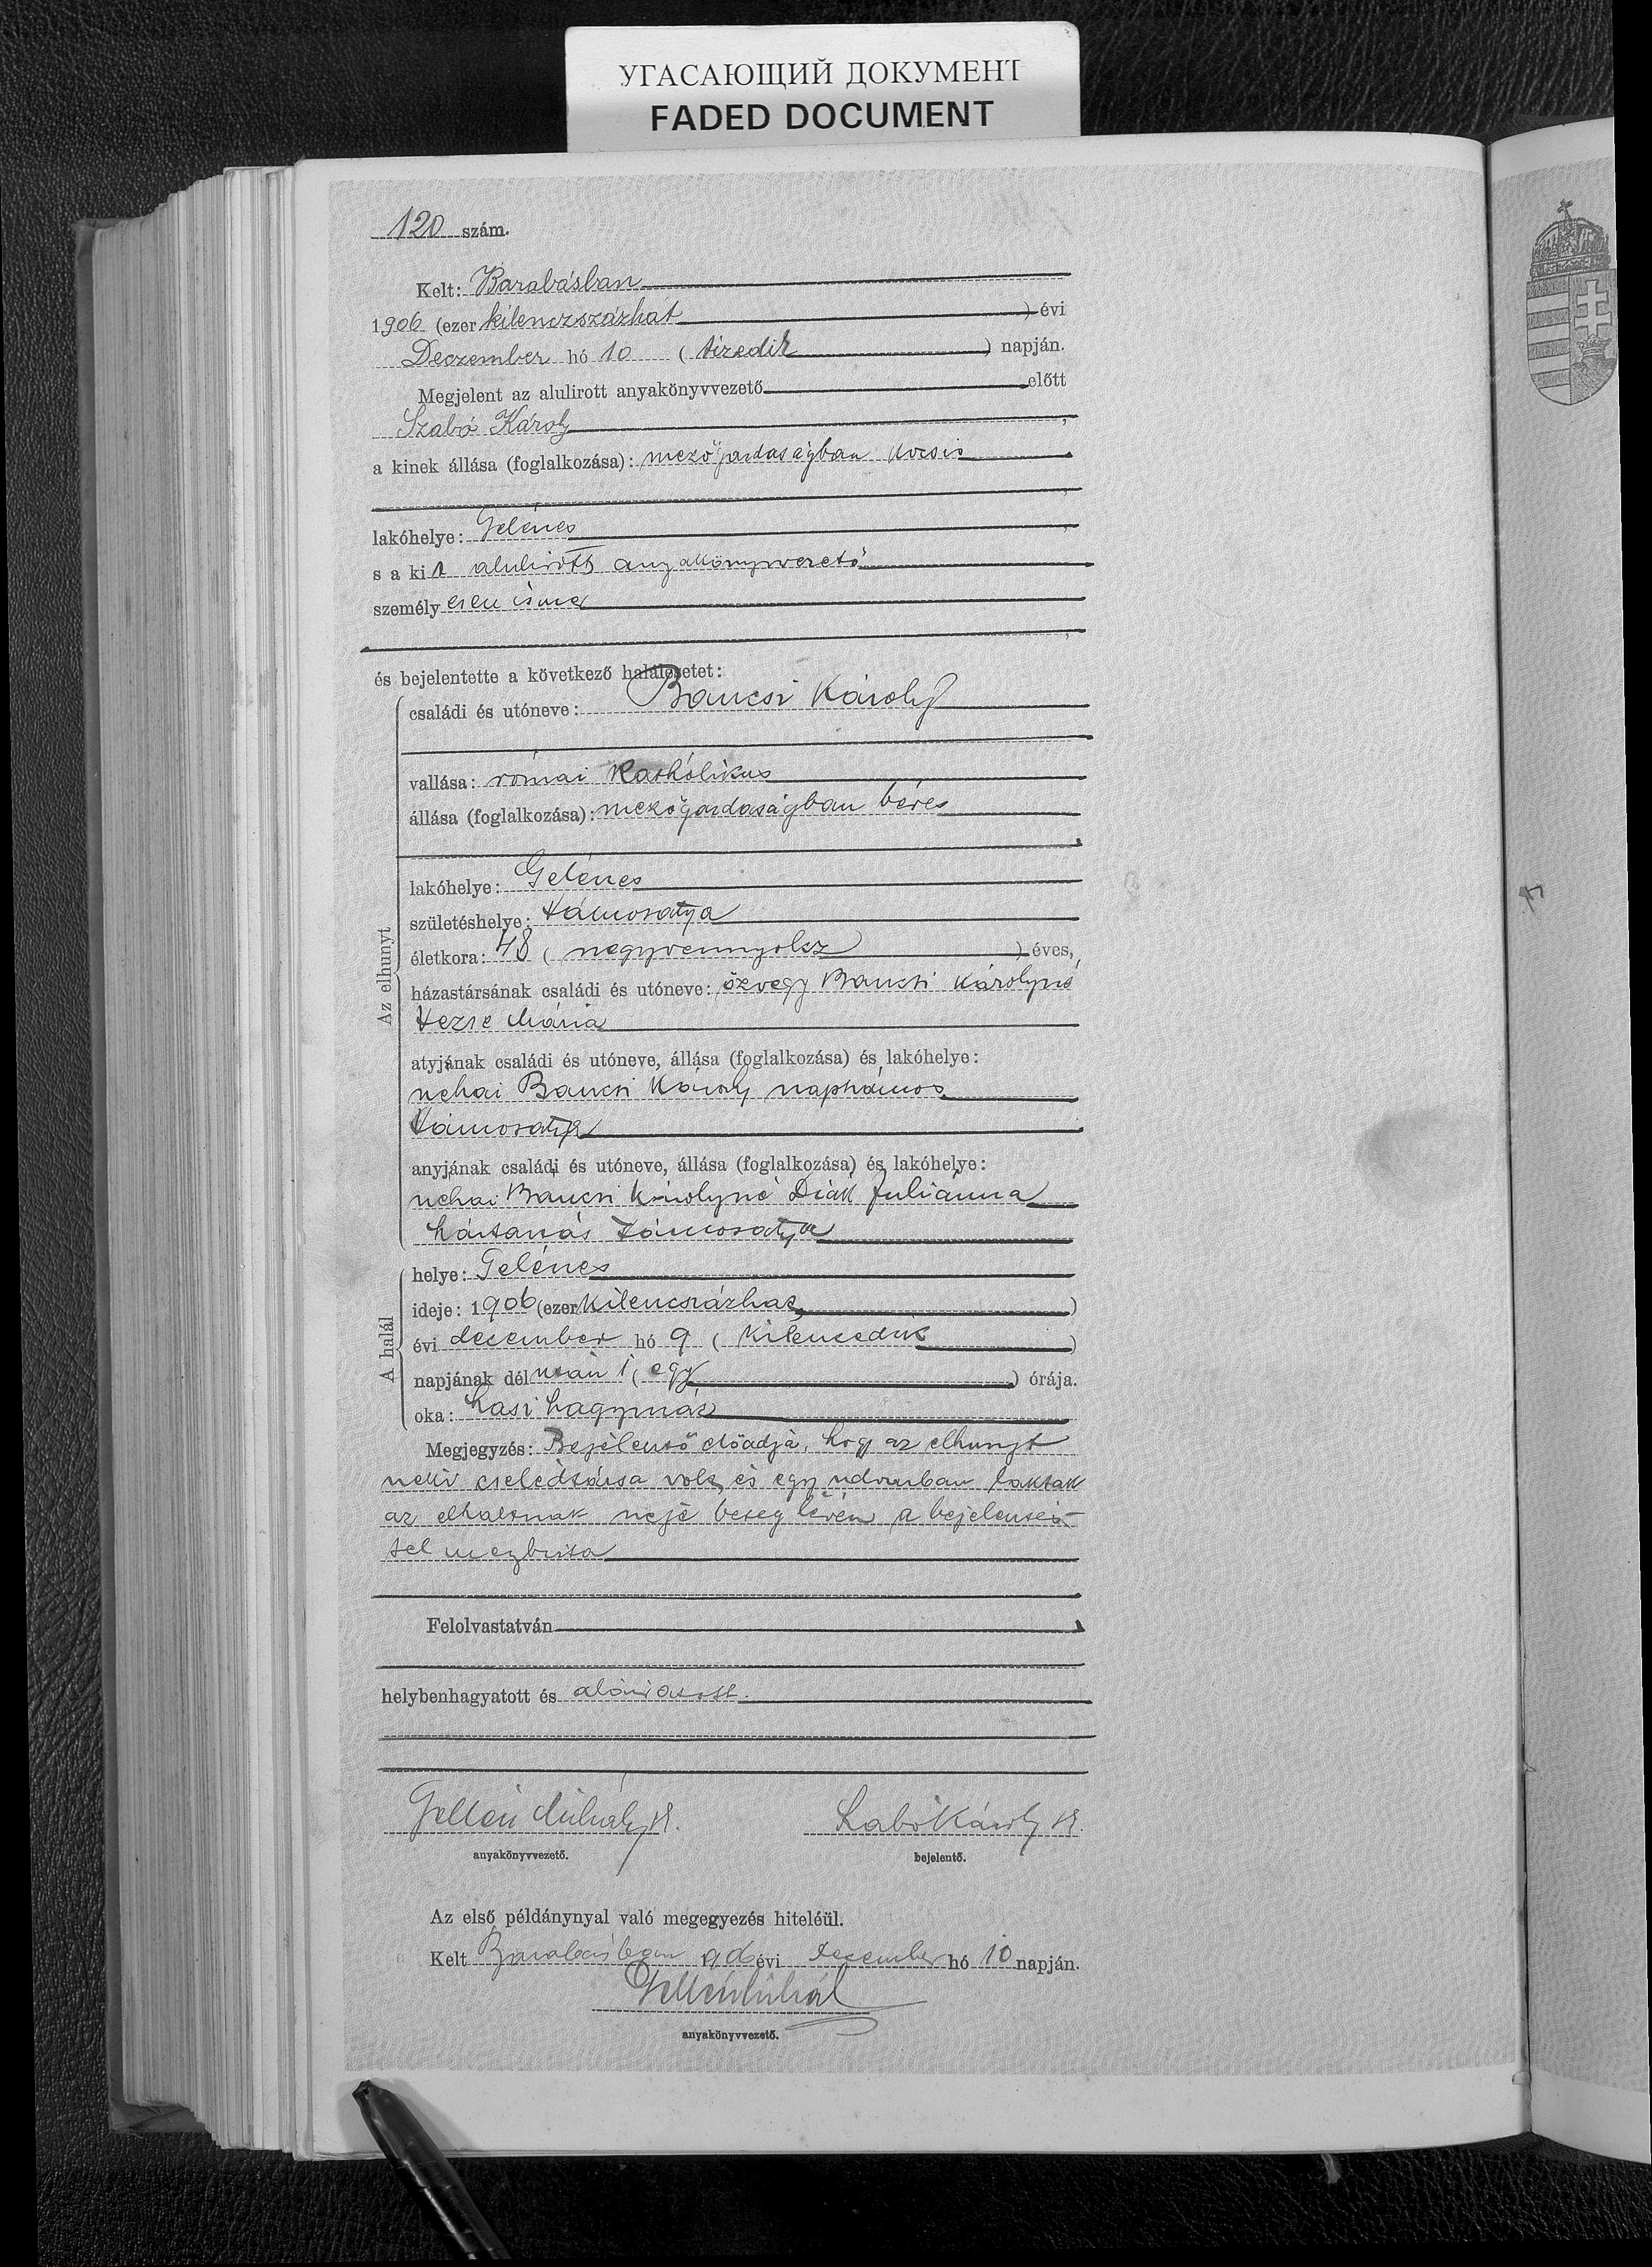 УГАСАЮЩИЙ ДОКУМЕНТ
FADED DOCUMENT
120 szám.
Kelt: Barabásban
1906 (ezer kilenczszázhat ) évi
Deczember hó 10 ( tizedik ) napján.
Megjelent az alulirott anyakönyvvezető előtt
Szabó Károly ,
a kinek állása (foglalkozása): mezőgazdaságban kocsis
,
lakóhelye: Gelénes ,
s a kit alulirott anyakönyvvezető
személyesen ismer
,
és bejelentette a következő halálesetet:
Az elhunyt
családi és utóneve: Bancsi Károly
vallása: római katholikus
állása (foglalkozása): mezőgazdaságban béres
,
lakóhelye: Gelénes
születéshelye: Vámosatya
életkora: 48 ( negyvennyolcz ) éves,
házastársának családi és utóneve: özvegy Bancsi Károlyné
Vezse Mária
atyjának családi és utóneve, állása (foglalkozása) és lakóhelye:
néhai Bancsi Károly napszámos
Vámosatya
anyjának családi és utóneve, állása (foglalkozása) és lakóhelye:
néhai Bancsi Károlyné Diák Juliánna
háztartás Vámosatya
A halál
helye: Gelénes
ideje: 1906 (ezer kilencszázhat )
évi december hó 9 ( kilencedik )
napjának dél után 1 ( egy ) órája.
oka: hasi hagymáz
Megjegyzés: Bejelentő előadja, hogy az elhunyt
neki cselédtársa volt, és egy udvarban laktak
az elhaltnak neje beteg lévén a bejelentés-
tel megbizta
Felolvastatván ,
helybenhagyatott és aláiratott.
Gellén Mihály sk.
Szabó Károly sk.
anyakönyvvezető.
bejelentő.
Az első példánynyal való megegyezés hiteléül.
Kelt Barabásban 1906 évi december hó 10 napján.
Gellén Mihály
anyakönyvvezető.